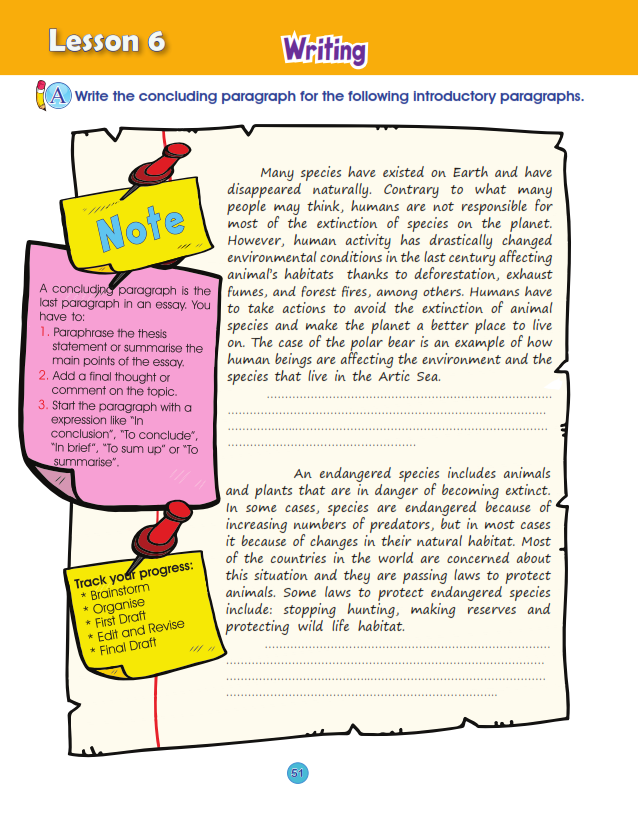 Lesson 6
Writing
A Write the concluding paragraph for the following introductory paragraphs.
Note
A concluding paragraph is the
last paragraph in an essay. You
have to:
1. Paraphrase the thesis
statement or summarise the
main points of the essay.
2. Add a final thought or
comment on the topic.
3. Start the paragraph with a
expression like “In
conclusion”, “To conclude”,
“In brief”, “To sum up” or “To
summarise”.
Many species have existed on Earth and have
disappeared naturally. Contrary to what many
people may think, humans are not responsible for
most of the extinction of species on the planet.
However, human activity has drastically changed
environmental conditions in the last century affecting
animal's habitats thanks to deforestation, exhaust
fumes, and forest fires, among others. Humans have
to take actions to avoid the extinction of animal
species and make the planet a better place to live
on. The case of the polar bear is an example of how
human beings are affecting the environment and the
species that live in the Artic Sea.
An endangered species includes animals
and plants that are in danger of becoming extinct.
In some cases, species are endangered because of
increasing numbers of predators, but in most cases
it because of changes in their natural habitat. Most
of the countries in the world are concerned about
this situation and they are passing laws to protect
animals. Some laws to protect endangered species
include: stopping hunting, making reserves and
protecting wild life habitat.
Track your progress:
* Brainstorm
* Organise
* First Draft
* Edit and Revise
* Final Draft
51